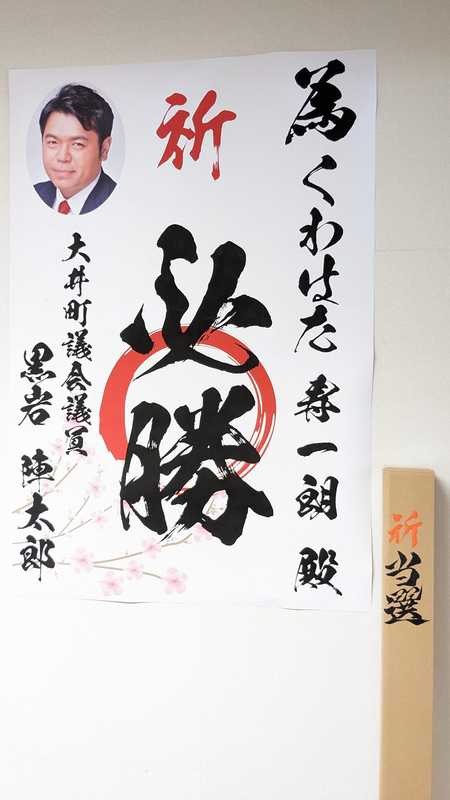 為くわはた 寿一朗 殿
祈
必勝
大井町議会議員
黒岩 陣太郎
祈
当選